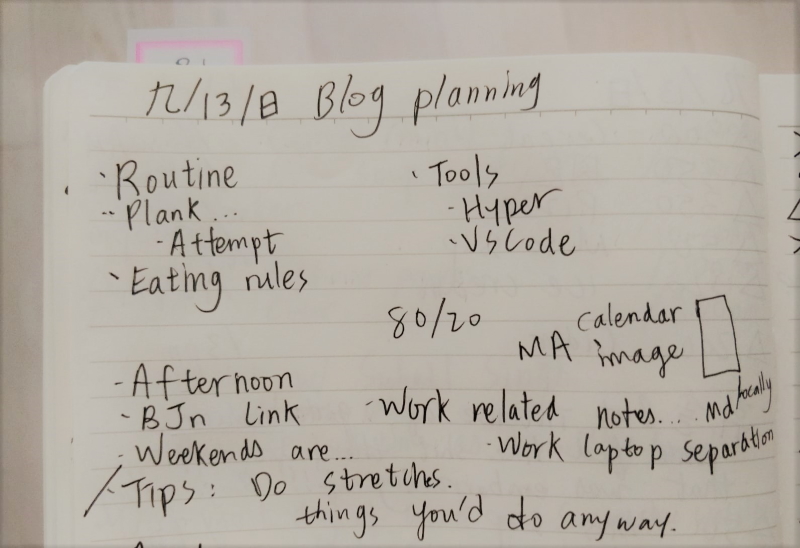 九/13/日 Blog planning
· Routine
· Tools
-- Plank...
- Hyper
- Attempt
- VSCode
· Eating rules
80/20
calendar
MA image
- Afternoon
- BJn link
- Work related notes.... md locally
- Weekends are...
- Work laptop separation
- Tips: Do stretches.
things you'd do anyway.